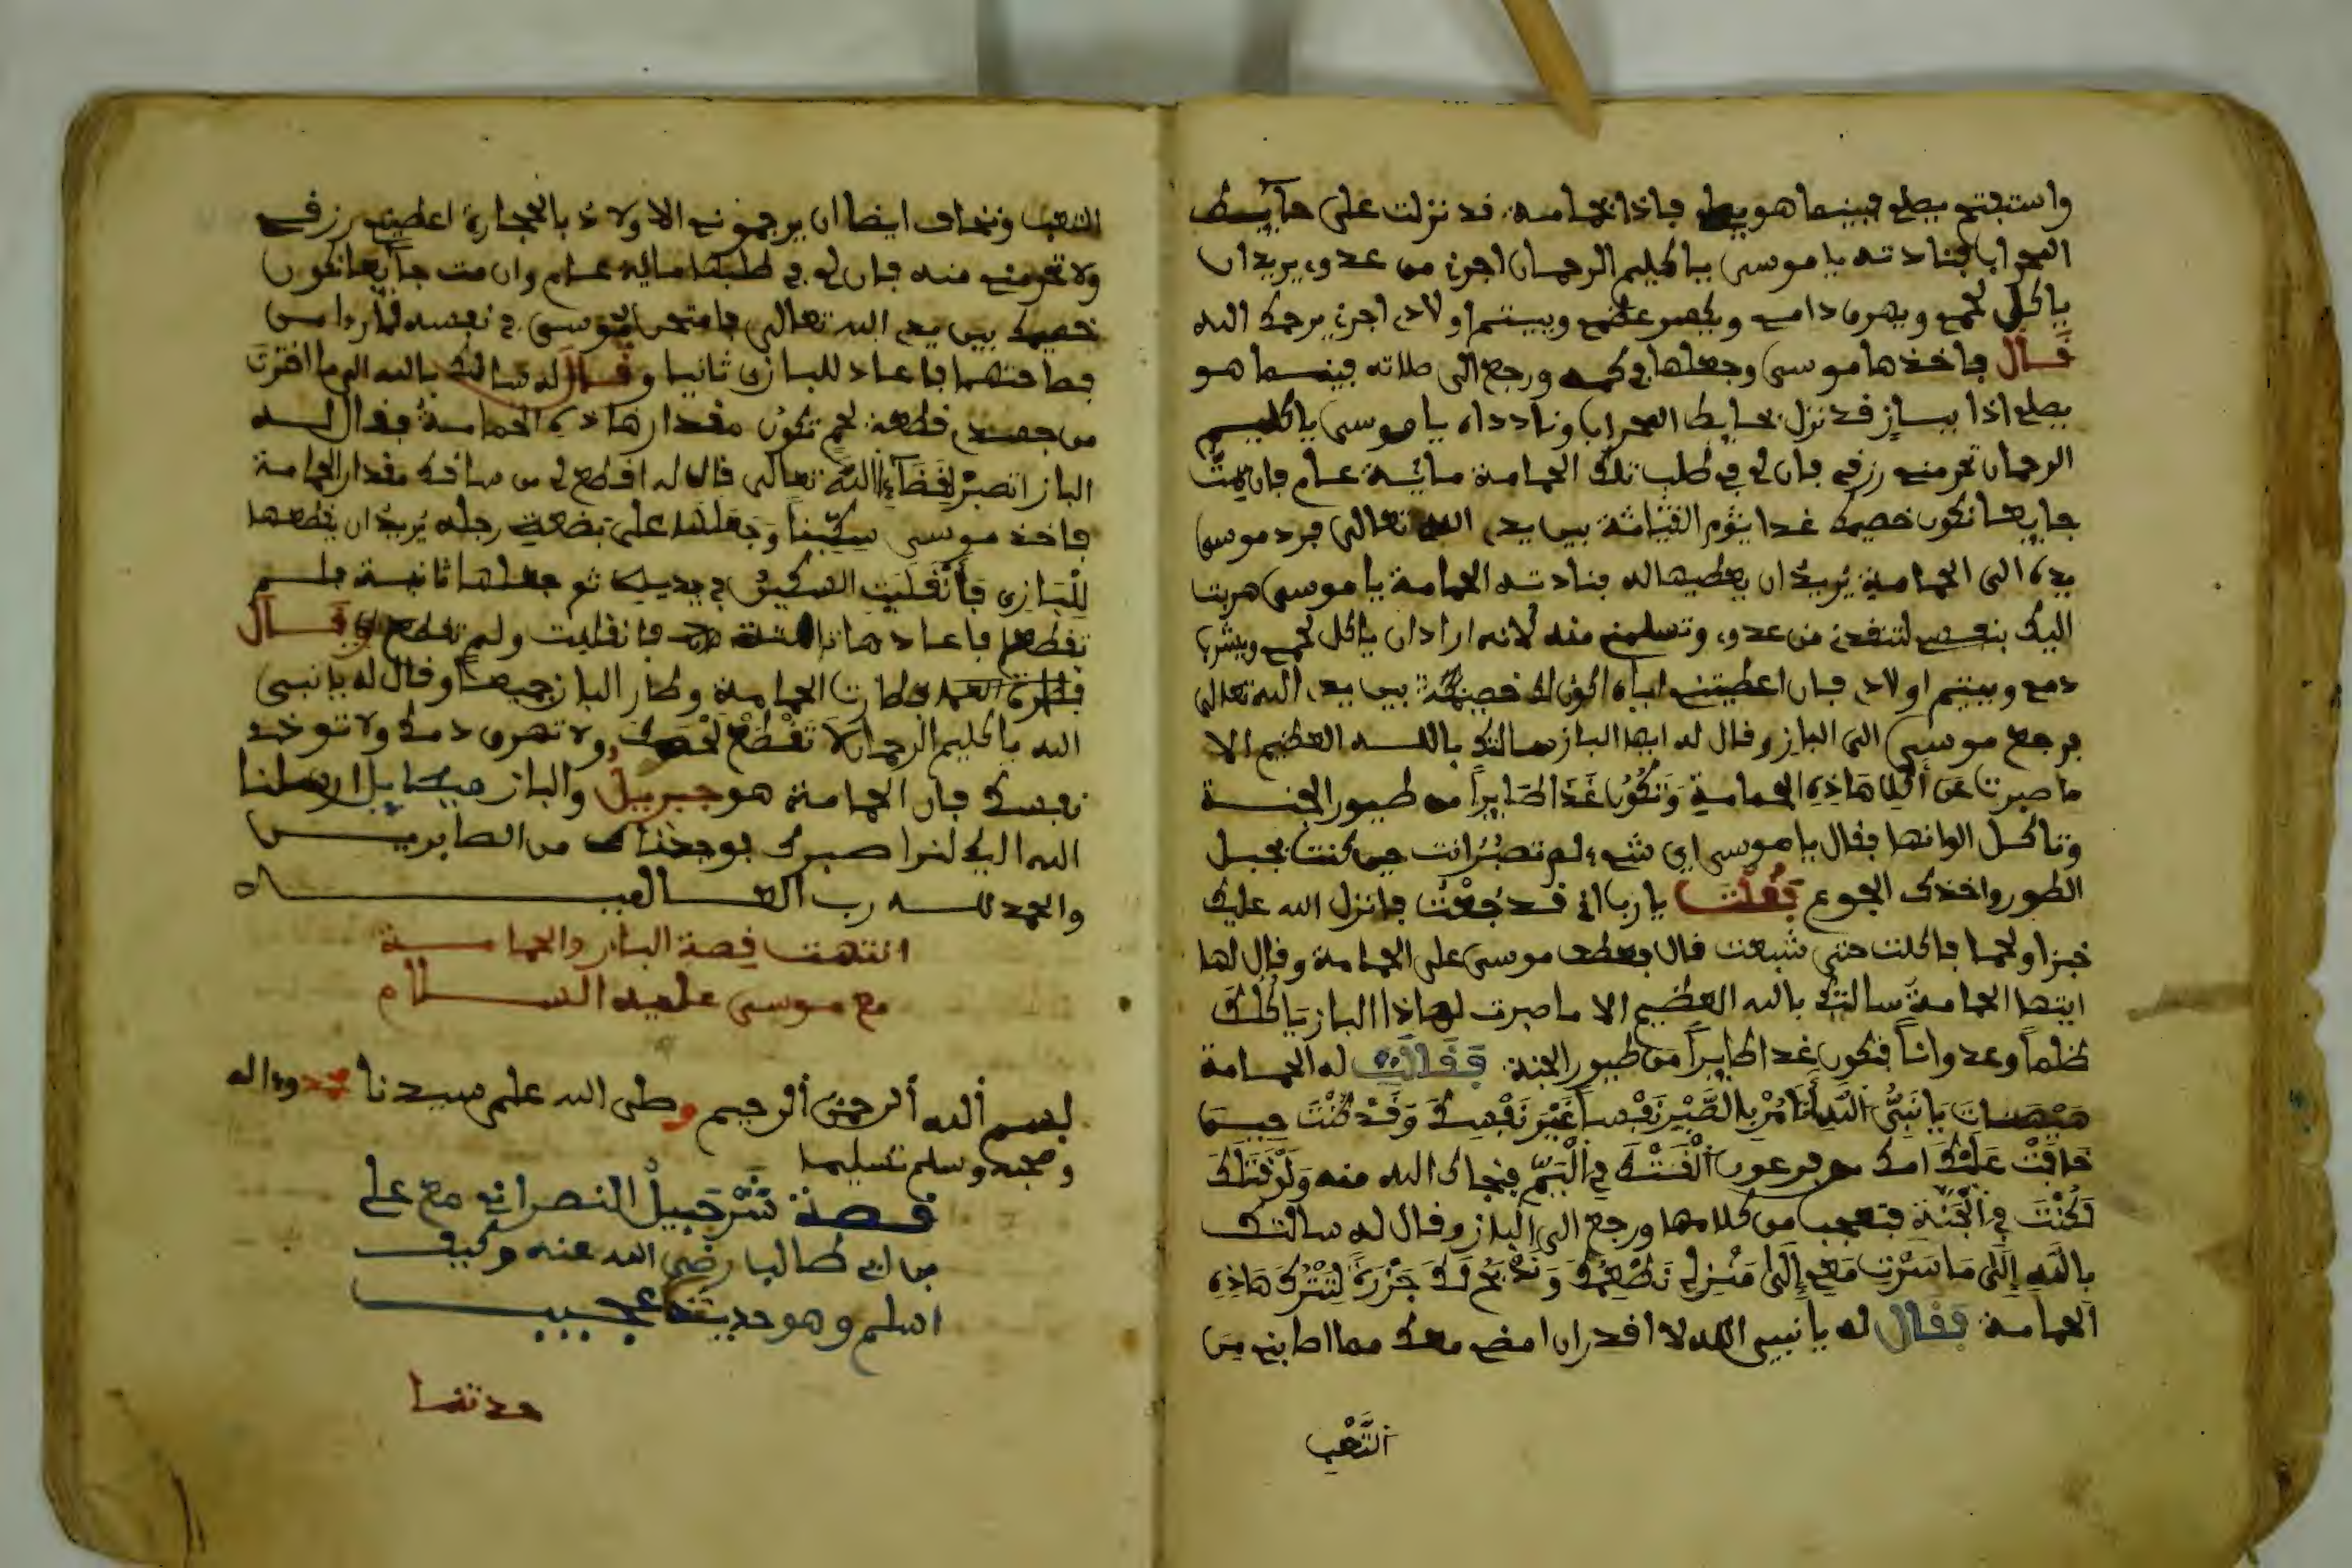 واستفتح يصلي فبينما هو يصلي فاذا بحمامة قد نزلت على حايط
المحراب فنادته يا موسى يا كليم الرحمان اجرني من عدوي يريد ان
ياكل لحمي ويهرق دامي ويكسر عظمي وييتم اولادي اجرني يرحمك الله
قال فاخذها موسى وجعلها في كمه ورجع الى صلاته فبينما هو
يصلي اذا بباز قد نزل بحايط المحراب وناداه يا موسى يا كليم
الرحمان تحرمني رزقي فان لي في طلب تلك الحمامة ماية عام فان مت
جايعا نكون خصيمك غدا يَوْم القِيَامَة بين يدي الله تعالى فرد موسى
يده الى الحمامة يُريدُ ان يعطيها له فنادته الحمامة يا موسى هربت
اليك بنفسي لتنقذني من عدوي وتسلمني منه لانه اراد ان ياكل لحمي ويشرب
دمي وييتم اولادي فان اعطيتني اياه اكون لك خصيمة بين يدي الله تعالى
فرجع موسى الى الباز وقال له ايها الباز سالتك بالله العظيم الا
ما صبرت عن أكل هَاذِهِ الحمامة وَتَكُونُ غَدًا طَايِراً من طيور الجنة
وتاكل الوانها فقال يا موسى اي شيء لم تصبُرْ انت حين كنت بجبل
الطور واخذك الجوع فَقُلْتَ يا رب اني قد جُعْتُ فانزل الله عليك
خبزا ولحما فاكلت حتى شبعت قال فعطف موسى على الحمامة وقال لها
ايتها الحمامة سالتك بالله العظيم الا ما صبرت لهاذا الباز يَاكُلُك
ظلماً وعدواناً فتكون غدا طايراً من طيور الجنة فَقَالَتْ له الحمامة
هَيْهَاتَ يَا نَبِيَّ اللَّهِ أَتَامُرُ بِالصَّبْرِ نَفْساً غَيْرَ نَفْسِكَ وَقَدْ كُنْتَ حِينَمَا
خَافَتْ عَلَيْكَ امك من فرعون أَلْقَتْكَ فِي الْيَمِّ فنجاك الله منه وَلَوْ قَتَلَكَ
لَكُنْتَ فِي الْجَنَّةِ فتعجب من كلامها ورجع الى الباز وقال له سالتك
بِاللَّهِ إِلَّى مَا سَرْتَ مَعِي إِلَى مَنْزِلِي نَطْعِمُكَ وَنَذْبَحُ لَكَ جَزْرَةً لِتَتْرُكَ هَاذِهِ
الحمامة فَقَالَ له يا نبيي الله لا اقدر ان امضي معك مما اصابني مِنَ
التَّعَبِ
التعب ونخاف ايضا ان يرجموني الاولادُ بالحجارة اعطيني رزقي
ولا تحرمني منه فان لي في طلبها ماية عام وان مت جايعا نكون
خصيمك بين يدي الله تعالى فامتحن موسى في نفسه
فعاد للبازي ثانيا وقال له سالتك بالله الى ما اخترت
من جسدي قطعة لحم تكون مقدار هاذه الحمامة فقال له
الباز اتصبرُ لِقَضَآءِ اللَّهِ تعالى قال له اقطع لي من ساقك مقدار الحمامة
فاخذ موسى سِكِّيناً وَجَعَلَهُ على بضعة رجله يُرِيدُ ان يقطعها
لِلْبَازِي فَأَنْقَلَبَتِ السكينُ في يديه ثم جعلها ثانية فلم
تقطع فاعادها ثالثة فانقلبت ولم تقطع وَقَالَ
فطارت الحمامة وطار الباز جميعاً وقال له يا نبي
الله يا كليم الرحمان لَا تَقْطَعْ لَحْمَكَ ولا تهرق دمك ولا توخذ
نفسك فان الحمامة هو جبريل والباز ميكاييل ارسلنا
الله اليك لنرا صبرك فوجدناك من الصابرين
والحمد لله رب العالمين
انتهت قصة الباز والحمامة
مع موسى عليه السلام
بسم ألله ألرحمن ألرحيم وصلى الله على سيدنا محمد واله
وصحبه وسلم تسليما
قصة شَرْحَبِيلُ النصراني مع علي
بن ابي طالب رضي الله عنه وكيف
اسلم وهو حديث عجيب
حدثنا